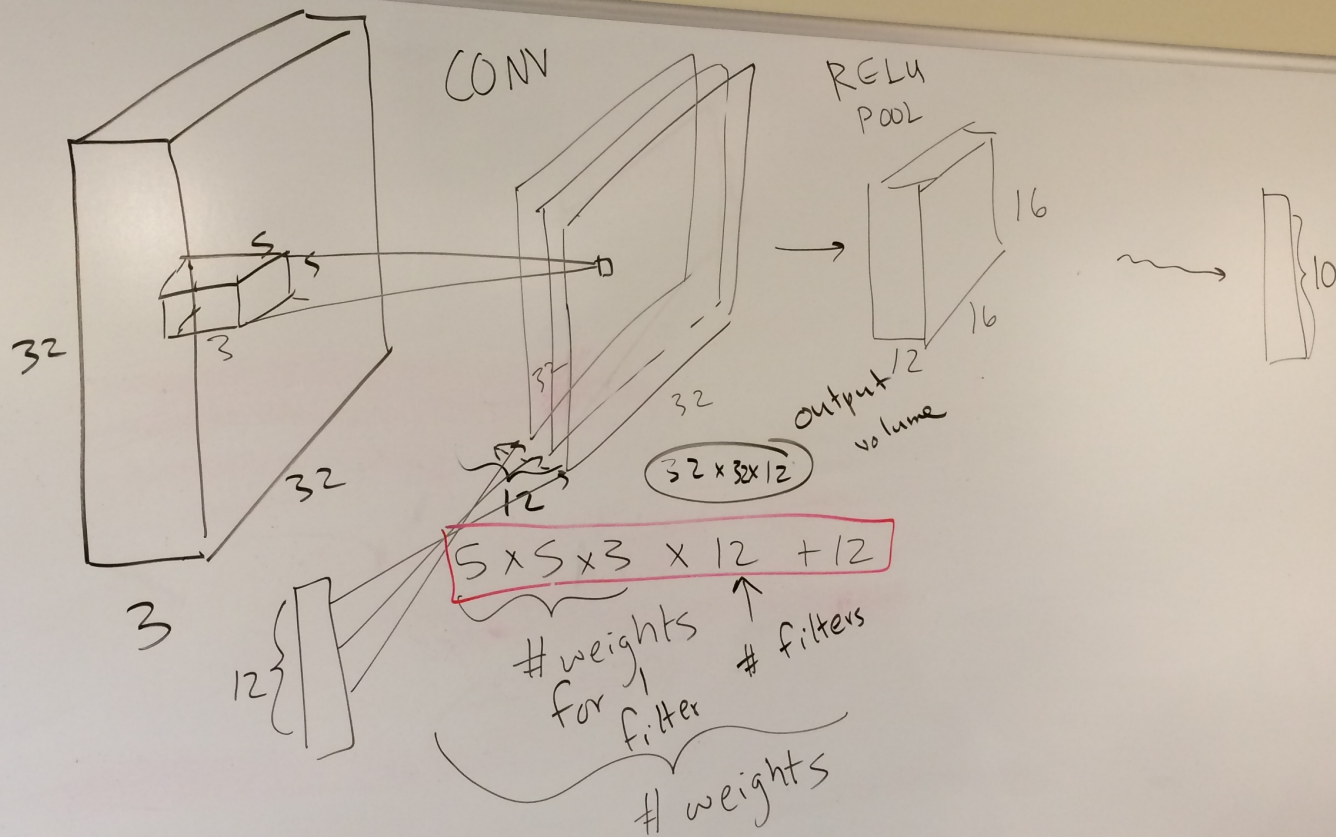 CONV
RELU
POOL
5
5
3
32
32
3
32
32
12
16
16
12
output
volume
10
32 x 32 x 12
5 x 5 x 3 x 12 + 12
12
# weights
for 1
filter
# filters
# weights